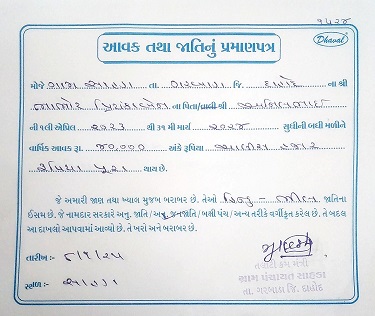 ૧૫૨૪
Dhaval
આવક તથા જાતિનું પ્રમાણપત્ર
મોજે ગામ સાહડા તા. ગરબાડા જિ. દાહોદ ના શ્રી
ભાભોર પ્રિયંકાબેન ના પિતા/વાલી શ્રી
ની ૧લી એપ્રિલ ૨૦૨૩ થી ૩૧ મી માર્ચ ૨૦૨૪ સુધીની બધી મળીને
વાર્ષિક આવક રૂા. ૪૦,૦૦૦ અંકે રૂપિયા ચાલીસ હજાર
રૂપિયા પુરા થાય છે.
જે અમારી જાણ તથા ખ્યાલ મુજબ બરાબર છે. તેઓ હિન્દુ - ભીલ જાતિના
ઈસમ છે. જે નામદાર સરકારે અનુ. જાતિ / અનુ. જનજાતિ / બક્ષી પંચ / અન્ય તરીકે વર્ગીકૃત કરેલ છે. તે બદલ
આ દાખલો આપવામાં આવ્યો છે. તે ખરો અને બરાબર છે.
તારીખ :-
સ્થળ :- સાહડા
તલાટી કમ મંત્રી
ગ્રામ પંચાયત સાહડા
તા. ગરબાડા જિ. દાહોદ